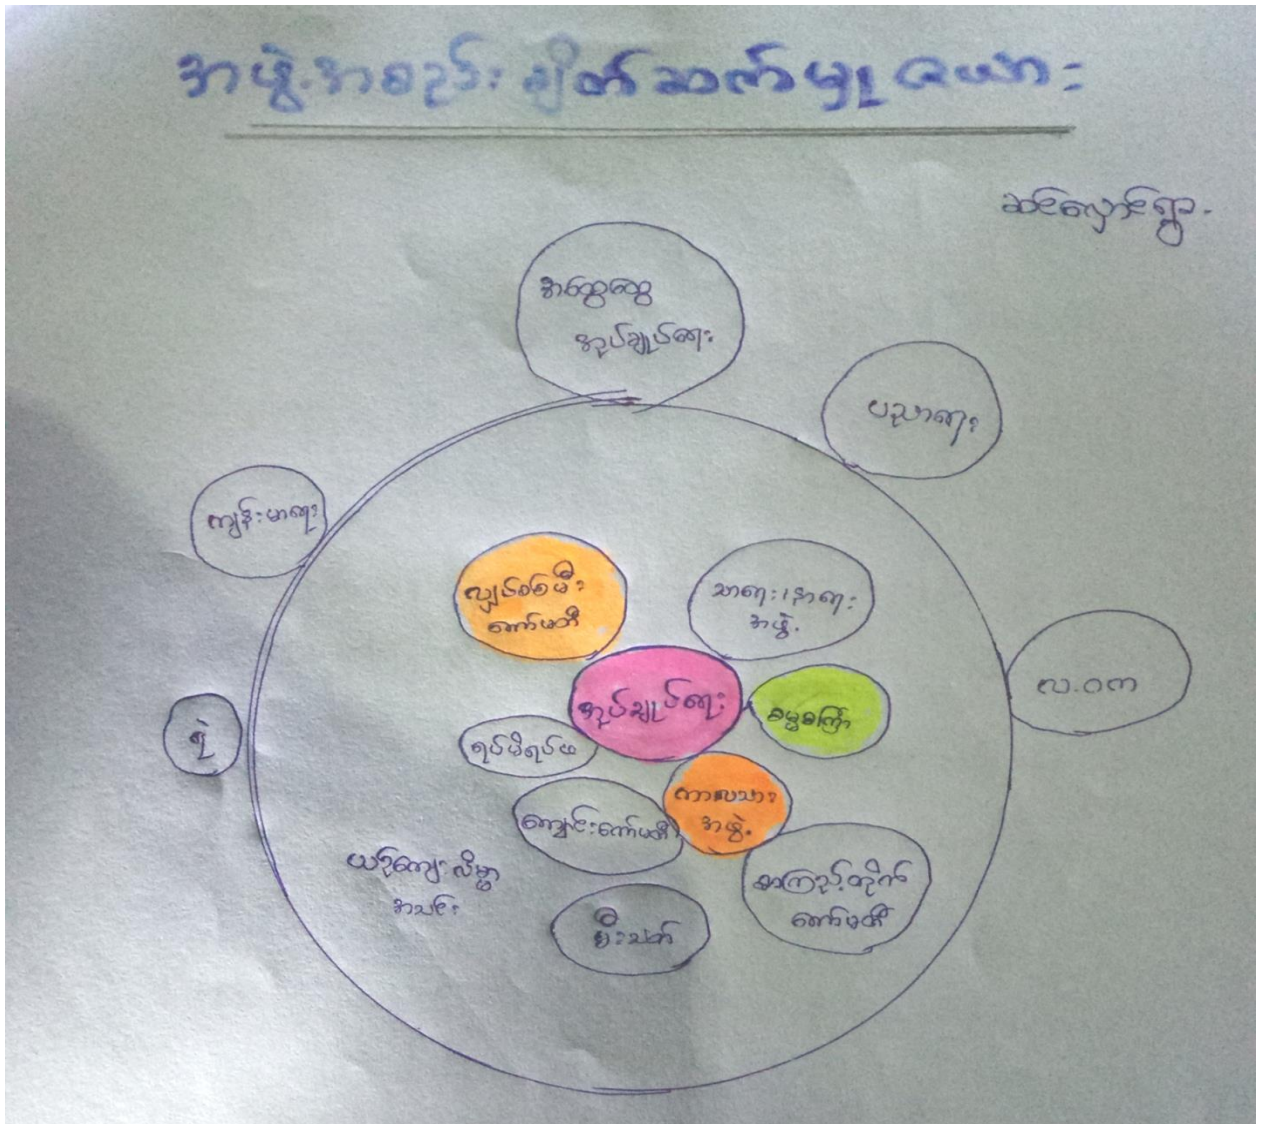 အဖွဲ့အစည်း ချိတ်ဆက်မှု ဇယား
ဆင်လှောင်ရွာ
အထွေထွေ
အုပ်ချုပ်ရေး
ပညာရေး
ကျန်းမာရေး
လျှပ်စစ်မီး
ကော်မတီ
သာရေး၊နာရေး
အဖွဲ့
လ.ဝက
အုပ်ချုပ်ရေး
ဓမ္မစကြာ
ရဲ
ရပ်မိရပ်ဖ
ကာလသား
အဖွဲ့
ကျောင်းကော်မတီ
ယဉ်ကျေးလိမ္မာ
အသင်း
စာကြည့်တိုက်
ကော်မတီ
မီးသတ်